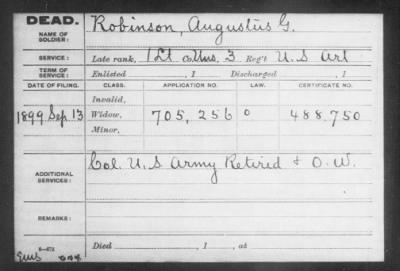 DEAD.
NAME OF SOLDIER:
Robinson, Augustus G.
SERVICE:
Late rank, 1 Lt Co. Uns. 3 Reg't U. S. Art
TERM OF SERVICE:
Enlisted , 1 Discharged , 1
DATE OF FILING. CLASS. APPLICATION NO. LAW. CERTIFICATE NO.
Invalid,
1899 Sep 13 Widow, 705,256 0 488,750
Minor,
ADDITIONAL SERVICES:
Col. U. S. Army Retired & O. W.
REMARKS:
Died , 1 , at
6-472